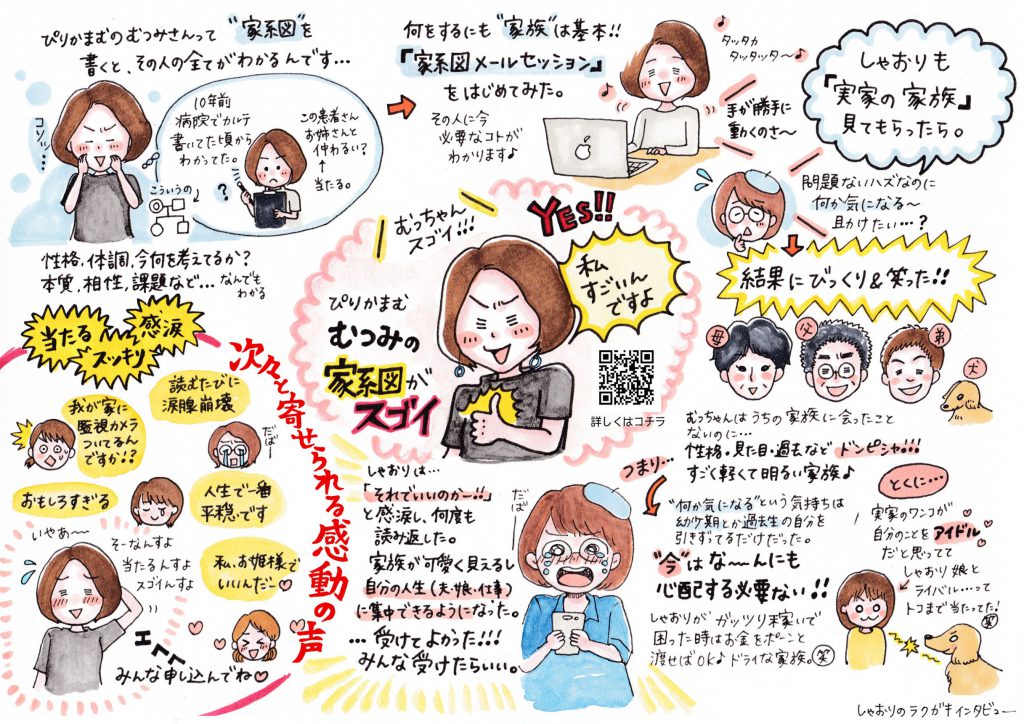 ぴりかまむのむつみさんって"家系図"を
書くと、その人の全てがわかるんです…
コソッ…
10年前
病院でカルテ
書いてた頃から
わかってた。
この患者さん
お姉さんと
仲わるい?
↑
当たる。
こういうの
?
性格、体調、今何を考えてるか?
本質、相性、課題など…なんでも
わかる
何をするにも"家族"は基本!!
『家系図メールセッション』
をはじめてみた。
その人に今
必要なコトが
わかります♪
タッタカ
タッタッタ〜♪
手が勝手に
動くのさ〜
しゃおりも
『実家の家族』
見てもらったら。
問題ないハズなのに
何か気になる〜
助けたい…?
結果にびっくり&笑った!!
母
父
弟
犬
むっちゃんはうちの家族に会ったこと
ないのに…
性格・見た目・過去など ドンピシャ!!!
すごく軽くて明るい家族♪
むっちゃん
スゴイ!!!
YES!!
私
すごいん
ですよ
ぴりかまむ
むつみの
家系図が
スゴイ
詳しくはコチラ
当たる
感涙
スッキリ
次々と寄せられる感動の声
読むたびに
涙腺崩壊
我が家に
監視カメラ
ついてるん
ですか!?
だばー
おもしろすぎる
人生で一番
平穏です
私、お姫様で
いいんだ〜♡
いやあ〜
そーなんすよ
当たるんすよ
スゴイんすよ
エヘヘ
みんな申し込んでね♡
しゃおりは…
「それでいいのかー!!」
と感涙し、何度も
読み返した。
家族が可愛く見えるし
自分の人生(夫・娘・仕事)
に集中できるようになった。
…受けてよかった!!!
みんな受けたらいい。
だば
つまり…
"何か気になる"という気持ちは
幼少期とか過去生の自分を
引きずってるだけだった。
"今"はな〜んにも
心配する必要ない!!
しゃおりがガッツリ稼いで
困った時はお金をポーンと
渡せばOK♪ドライな家族。笑
とくに…
実家のワンコが
自分のことをアイドル
だと思ってて
しゃおり娘と
ライバル……って
トコまで当たってた!
笑
しゃおりのラクガキインタビュー